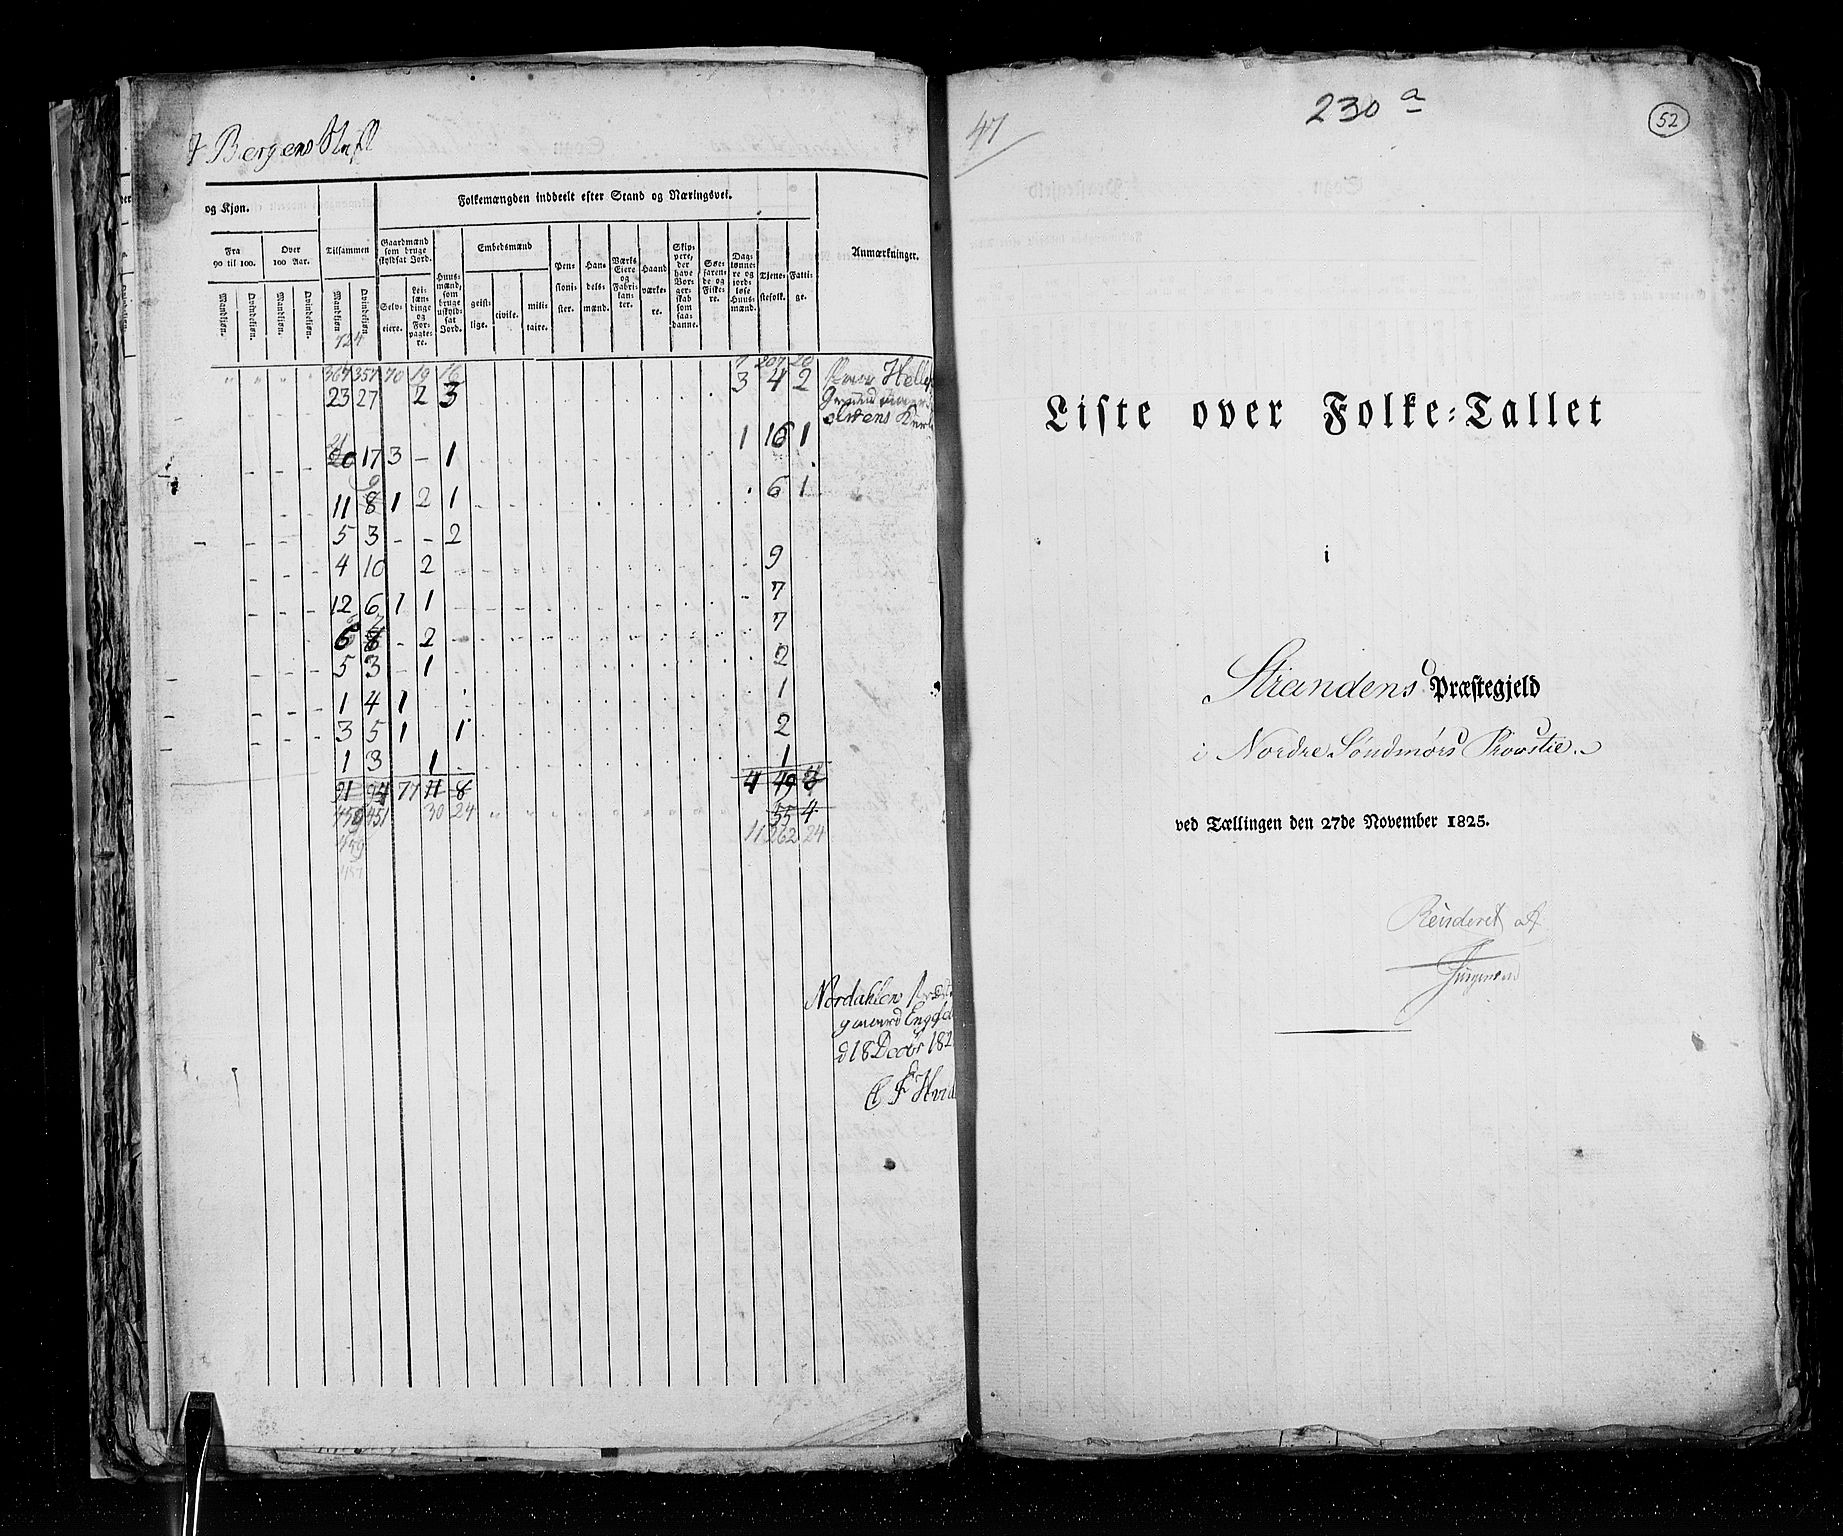 Bergens Stift
og Kjøn.
Folkemængden inddeelt efter Stand og Næringsvei.
Fra 90 til 100.
Over 100 Aar.
Tilsammen
Gaardmænd som bruge skyldsat Jord.
Huusmænd, som bruge uskyldsat Jord.
Embedsmænd
Pensionister.
Handelsmænd.
Værks-Eiere og Fabrikanter.
Haandværkere.
Skippere, der have Borgerskab som saadanne.
Søefarende og Fiskere.
Daglønnere og jordløse Huusmænd.
Tjenestefolk.
Fattige.
Anmærkninger.
Mandkjøn. Qvindekjøn. Mandkjøn. Qvindekjøn. Mandkjøn. Qvindekjøn. Selveiere. Leilændinge og Forpagtere. geistlige. civile. militaire.
724
367 357 70 19 16 7 207 20
23 27 2 3 3 4 2
21
20 17 3 – 1 1 16 1
9
11 8 1 2 1 6 1
5 3 – – 2
4 10 2 9
12 6 1 1 7
6 8 – 2 7
5 3 – 1 2
1 4 1 1
3 5 1 1 2
1 3 1 1
91 94 77 11 8 4 49 3
459 451 30 24 55 4
11 262 24
459
457
Nordahlen
gaard
d 18 Decbr 182
47
230 a
52
Liste over Folke-Tallet
i
Strandens Præstegjeld
i Nordre Søndmørs Provstie.
ved Tællingen den 27de November 1825.
Revideret af
Jürgensen